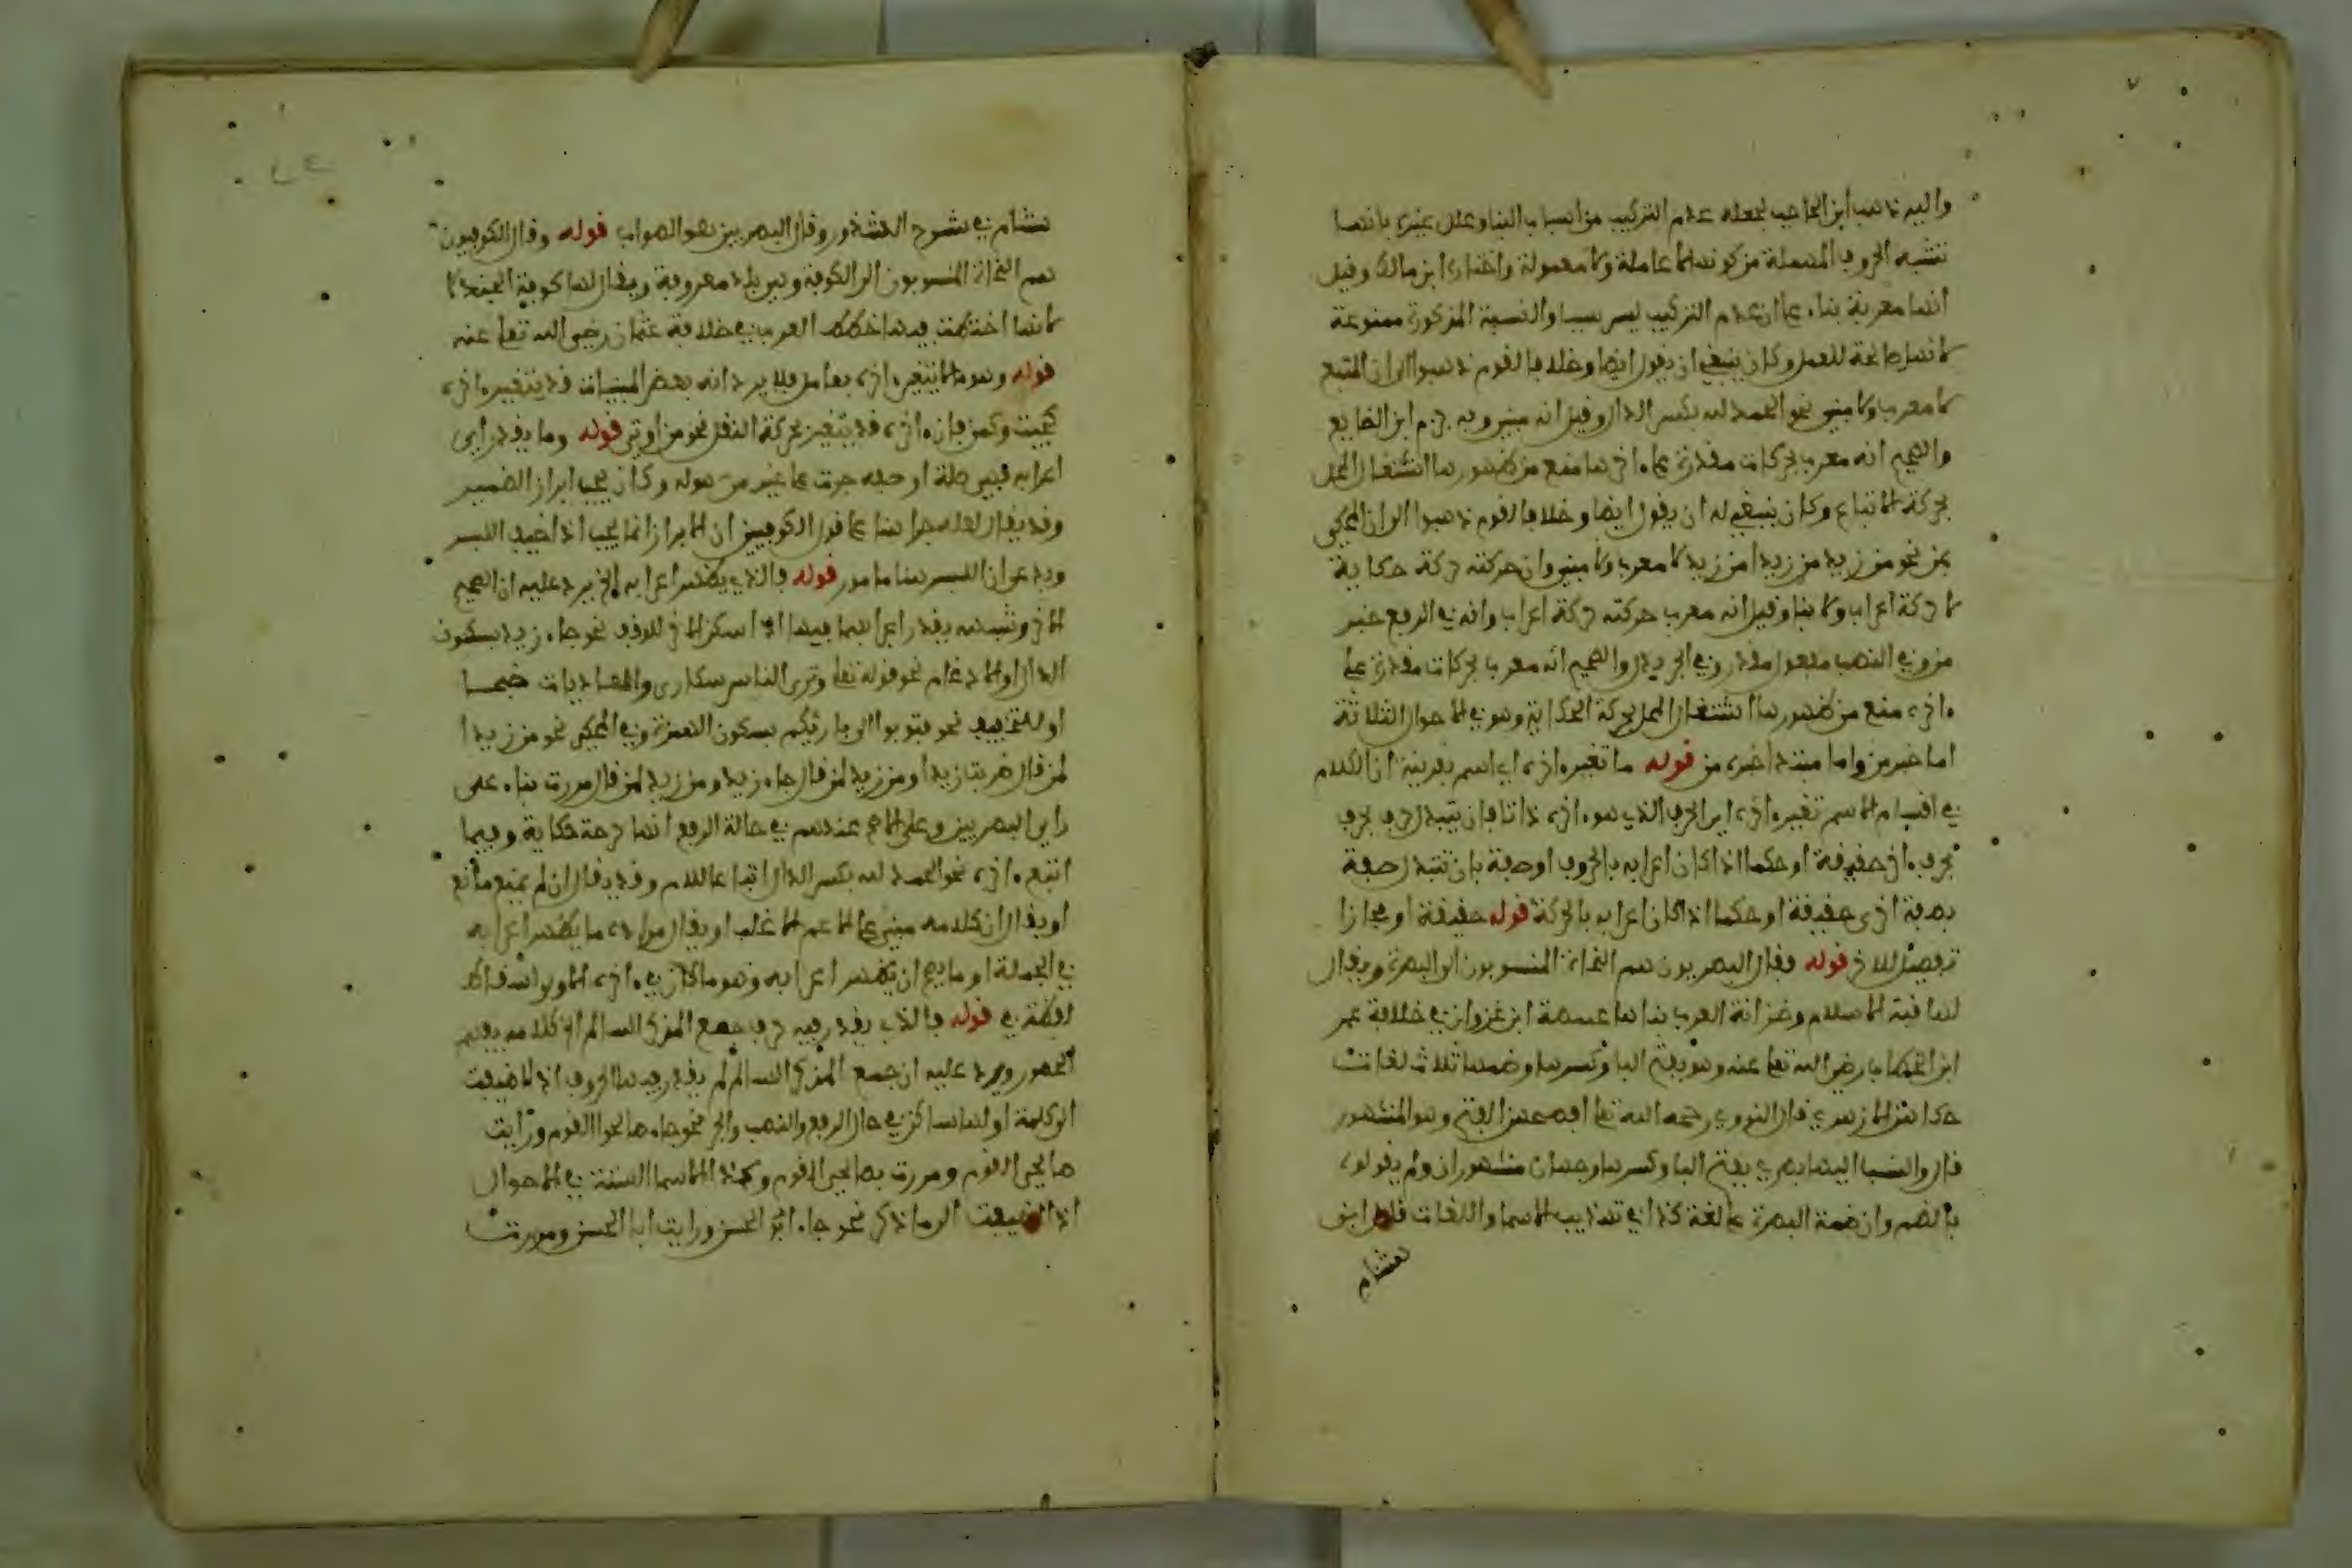 واليه ذهب ابن الحاجب لجعله عدم التركيب من اسباب البنا وعلل غيره بانها
تشبه الحروف المهملة من كونها لا عاملة ولا معمولة واختاره ابن مالك وقيل
انها معربة بناء على ان عدم التركيب ليس سببا والشبه المذكورة ممنوعة
لانها صالحة للعمل وكان ينبغي ان يقول ايضا وخلافا لقوم ذهبوا الى ان المتبع
لا معرب ولا مبني نحو الحمد لله بكسر الدال وقيل انه مبني وبه جزم ابن الضايع
والصحيح انه معرب بحركات مقدرة على ءاخرها منع من ظهورها اشتغال المحل
بحركة الاتباع وكان ينبغي له ان يقول ايضا وخلافا لقوم ذهبوا الى ان المحكي
بمن نحو من زيد من زيدا من زيد لا معرب ولا مبني وان حركته حركة حكاية
لا حركة اعراب ولا بنا وقيل انه معرب حركته حركة اعراب وانه في الرفع خبر
من وفي النصب مفعول مقدر وفي الجر بدل والصحيح انه معرب بحركات مقدرة على
ءاخره منع من ظهورها اشتغال المحل بحركة الحكاية وهو في الاحوال الثلاثة
اما خبر من واما مبتدا خبره من قوله ما تغير ءاخره اي اسم بقرينة ان الكلام
في اقسام الاسم تغير ءاخره اي الحرف الذي هو ءاخره ذاتا بان يتبدل حرف بحرف
بحرف ءاخر حقيقة او حكما اذا كان اعرابه بالحروف او صفة بان تتبدل صفة
بصفة اخرى حقيقة او حكما اذا كان اعرابه بالحركة قوله حقيقة او مجازا
تفصيل للاخر قوله فقال البصريون هم النحاة المنسوبون الى البصرة ويقال
لها قبة الاسلام وخزانة العرب بناها عتبة ابن غزوان في خلافة عمر
ابن الخطاب رضي الله تعا عنه وهو بفتح البا وكسرها وضمها ثلاث لغات
حكاهن الازهري قال النووي رحمه الله تعا افصحهن الفتح وهو المشهور
قال والنسب اليها بصري بفتح البا وكسرها وجهان مشهوران ولم يقولوه
بالضم وان ضمت البصرة على لغة كذا في تهذيب الاسما واللغات قال ابن
هشام
هشام في شرح الشذور وقال البصريين هو الصواب قوله وقال الكوفيون
هم النحاة المنسوبون الى الكوفة وهي بلد معروفة ويقال لها كوفة الجند لا
لانها اختطت فيها خطط العرب في خلافة عثمان رضي الله تعا عنه
قوله وهو ما لا يتغير ءاخره بعامل فلا يرد انه بعض المبنيات قد يتغير ءاخره
كحيث وكمن فان ءاخره قد يتغير بحركة النقل نحو من اوتي قوله وما يقدر اي
اعرابه فهي صلة او صفة جرت على غير من هو له وكان يجب ابراز الضمير
وقد يقال لعله جرا هنا على قول الكوفيين ان الابراز انما يجب اذا خيف اللبس
ويدعى ان اللبس هنا مامور قوله فالذي يظهر اعرابه الخ يرد عليه ان الصحيح
الاخر وشبهه يقدر اعرابهما فيها اذا سكن الاخر للوقف نحو جاء زيد بسكون
الدال او للادغام نحو قوله تعا وترى الناس سكارى والعاديات ضبحا
او للتخفيف نحو فتوبوا الى بارئكم بسكون الهمزة وفي المحكي نحو من زيدا
لمن قال ضربت زيدا ومن زيد لمن قال جاء زيد ومن زيد لمن قال مررت بناء على
راي البصريين وعلى الاصح عندهم في حالة الرفع انها حركة حكاية وفيما
اتبع ءاخره نحو الحمد لله بكسر الدال اتباعا للام وقد يقال ان لم يمنع مانع
او يقال ان كلامه مبني على الاعم الاغلب او يقال مراده ما يظهر اعرابه
في الجملة او ما يصح ان يظهر اعرابه وهو ما كان في ءاخره الاولى اسقاط
لفظة في قوله فالذي يقدر فيه حرف جمع المذكر السالم الخ كلامه يفهم
الحصور ويرد عليه ان جمع المذكر السالم لم يقدر فيه الحروف اذا اضيفت
الى كلمة اولها ساكن في حال الرفع والنصب والجر نحو جاء صالحوا القوم ورايت
صالحي القوم ومررت بصالحي القوم وكذا الاسما الستة في الاحوال
اذا اضيفت الى ما ذكر نحو جاء ابو الحسن ورايت ابا الحسن ومررت